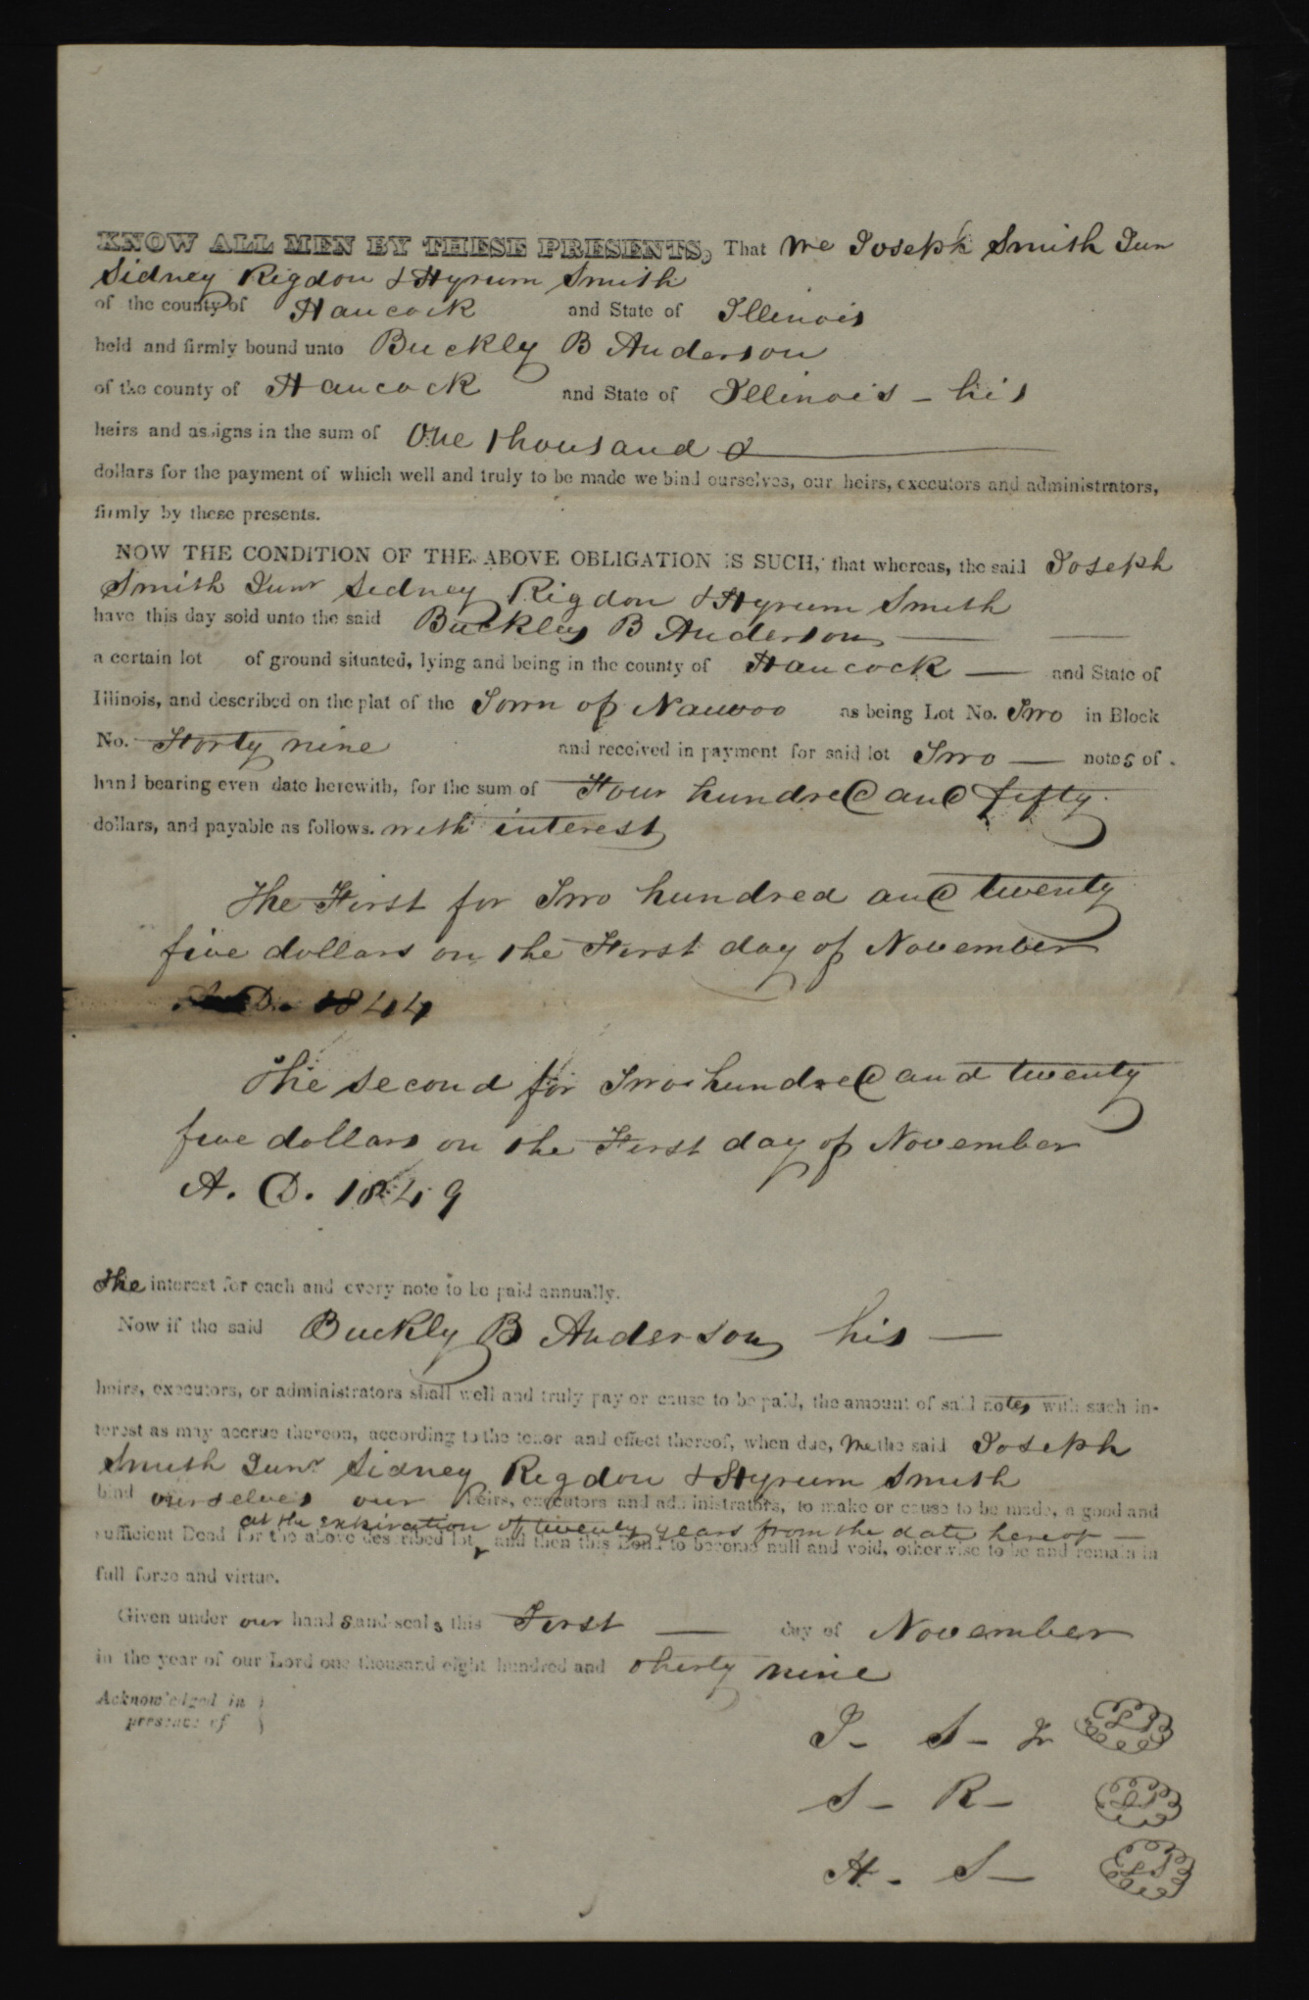 KNOW ALL MEN BY THESE PRESENTS, That We Joseph Smith Jun
Sidney Rigdon & Hyrum Smith
of the county of Hancock and State of Illinois
held and firmly bound unto Buckly B Anderson
of the county of Hancock and State of Illinois – his
heirs and assigns in the sum of One thousand &
dollars for the payment of which well and truly to be made we bind ourselves, our heirs, executors and administrators,
firmly by these presents.
NOW THE CONDITION OF THE ABOVE OBLIGATION IS SUCH, that whereas, the said Joseph
Smith Junr Sidney Rigdon & Hyrum Smith
have this day sold unto the said Buckley B Anderson —
a certain lot of ground situated, lying and being in the county of Hancock — and State of
Illinois, and described on the plat of the Town of Nauvoo as being Lot No. Two in Block
No. Forty nine and received in payment for said lot Two — notes of
hand bearing even date herewith, for the sum of Four hundred and fifty
dollars, and payable as follows. with interest
The First for Two hundred and twenty
five dollars on the First day of November
A. D. 1844
The second for Two hundred and twenty
five dollars on the First day of November
A. D. 1849
The interest for each and every note to be paid annually.
Now if the said Buckly B Anderson his —
heirs, executors, or administrators shall well and truly pay or cause to be paid, the amount of said notes with such in-
terest as may accrue thereon, according to the tenor and effect thereof, when due, We the said Joseph
Smith Junr Sidney Rigdon & Hyrum Smith
bind ourselves our heirs, executors and administrators, to make or cause to be made, a good and
at the expiration of twenty years from the date hereof —
sufficient Deed for the above described lot, and then this Bond to become null and void, otherwise to be and remain in
full force and virtue.
Given under our hands and seals this First — day of November
in the year of our Lord one thousand eight hundred and thirty nine
Acknowledged in
presence of
J – S – Jr LS
S – R – LS
H. – S – LS